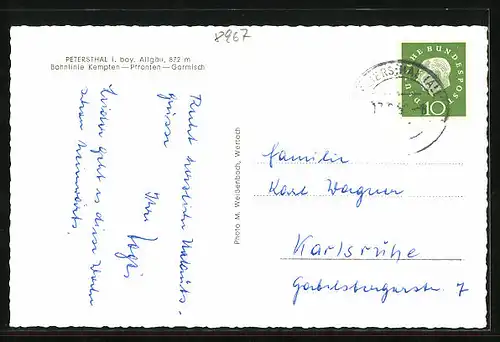 8967
PETERSTHAL i. bay. Allgäu, 872 m
Bahnlinie Kempten—Pfronten—Garmisch
Recht herzliche Urlaubs-
grüsse
Ihre
Leider geht es diese Woche
schon heimwärts!
Photo M. Weidenbach, Wertach
DEUTSCHE BUNDESPOST
10
Familie
Karl Wagner
Karlsruhe
Gabelsbergerstr. 7